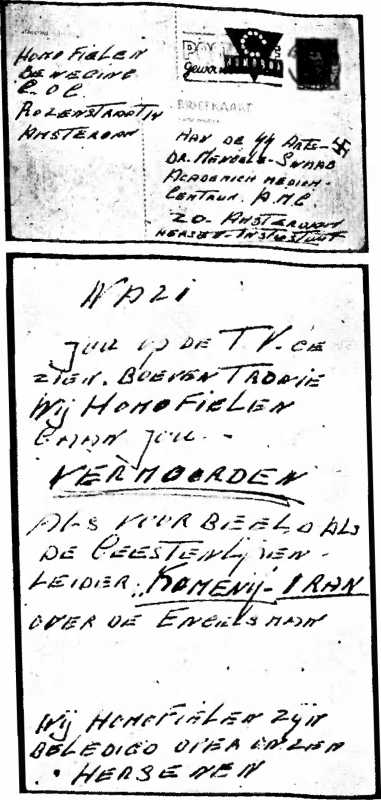 HOMOFIELEN
BEWEGING
C.O.C.
ROZENSTRAAT
AMSTERDAM
BRIEFKAART
AAN DE SS ARTS-
DR. MENGELE-SWAAB
ACADEMICH MEDICH-
CENTRUM. A.M.C
ZO- AMSTERDAM
HERSEN-INSTITUUT
NAZI
JOU OP DE T.V. GE
ZIEN. BOEVEN TRONIE
WIJ HOMOFIELEN
GAAN JOU -
VERMOORDEN
ALS VOORBEELD ALS
DE GEESTENLIJKEN-
LEIDER, KOMENIJ-IRAN
OVER DE ENGELSMAN
WIJ HOMOFIELEN ZIJN
BELEDIGD OVER ONZEN
HERSENEN